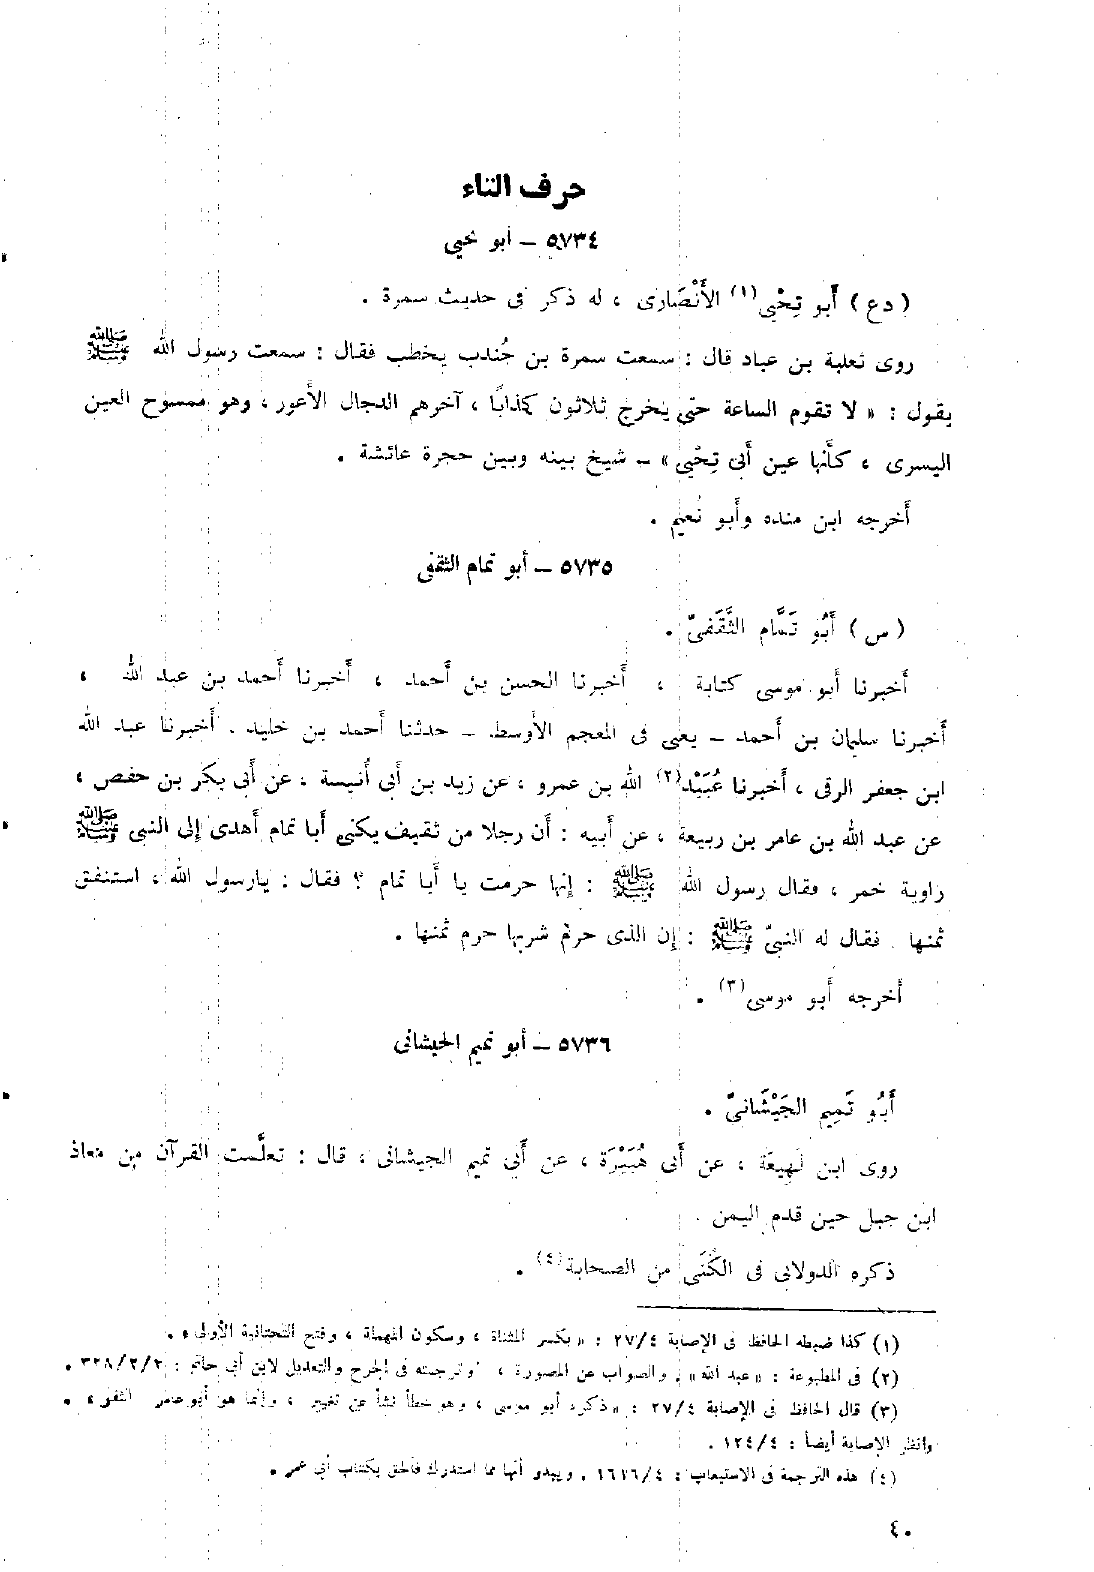 حرف التاء
٥٧٣٤ – أبو تحيى
(دع) أَبو تِحْيى(١) الأَنْصَارى ، له ذكر فى حديث سمرة .
روى ثعلبة بن عباد قال : سمعت سمرة بن جُندب يخطب فقال : سمعت رسول الله ﷺ
يقول : « لا تقوم الساعة حتى يخرج ثلاثون كذابًا ، آخرهم الدجال الأَعور ، وهو ممسوح العين
اليسرى ، كأَنها عين أَبى تِحْيى » – شيخ بينه وبين حجرة عائشة .
أَخرجه ابن منده وأَبو نُعيم .
٥٧٣٥ – أبو تمام الثقفى
(س) أَبُو تَمَّام الثَّقَفىّ .
أَخبرنا أَبو موسى كتابة ، أَخبرنا الحسن بن أَحمد ، أَخبرنا أَحمد بن عبد الله ،
أَخبرنا سليمان بن أَحمد – يعنى فى المعجم الأَوسط – حدثنا أَحمد بن خليد . أَخبرنا عبد الله
ابن جعفر الرقى ، أَخبرنا عُبَيْد(٢) الله بن عمرو ، عن زيد بن أَبى أُنيسة ، عن أَبى بكر بن حفص ،
عن عبد الله بن عامر بن ربيعة ، عن أَبيه : أَن رجلا من ثقيف يكنى أَبا تمام أَهدى إلى النبى ﷺ
راوية خمر ، فقال رسول الله ﷺ : إنها حرمت يا أَبا تمام ؟ فقال : يارسول الله ، استنفق
ثمنها . فقال له النبىّ ﷺ : إن الذى حرم شربها حرم ثمنها .
أَخرجه أَبو موسى(٣) .
٥٧٣٦ – أبو تميم الجيشانى
أَبُو تَمِيم الجَيْشَانىّ .
روى ابن لَهِيعَة ، عن أَبى هُبَيْرَة ، عن أَبى تميم الجيشانى ، قال : تعلَّمت القرآن من معاذ
ابن جبل حين قدم اليمن .
ذكره الدولابى فى الكُنَى من الصحابة(٤) .
(١) كذا ضبطه الحافظ فى الإصابة ٢٧/٤ : « بكسر المثناة ، وسكون المهملة ، وفتح التحتانية الأولى » .
(٢) فى المطبوعة : « عبد الله » . والصواب عن المصورة ، وترجمته فى الجرح والتعديل لابن أبى حاتم : ٣٢٨/٢/٢ .
(٣) قال الحافظ فى الإصابة ٢٧/٤ : « ذكره أبو موسى ، وهو خطأ نشأ عن تغيير ، وإنما هو أبو عامر الثقفى » .
وانظر الإصابة أيضاً : ١٢٤/٤ .
(٤) هذه الترجمة فى الاستيعاب : ١٦١٦/٤ . ويبدو أنها مما استدرك فألحق بكتاب أبى عمر .
٤٠